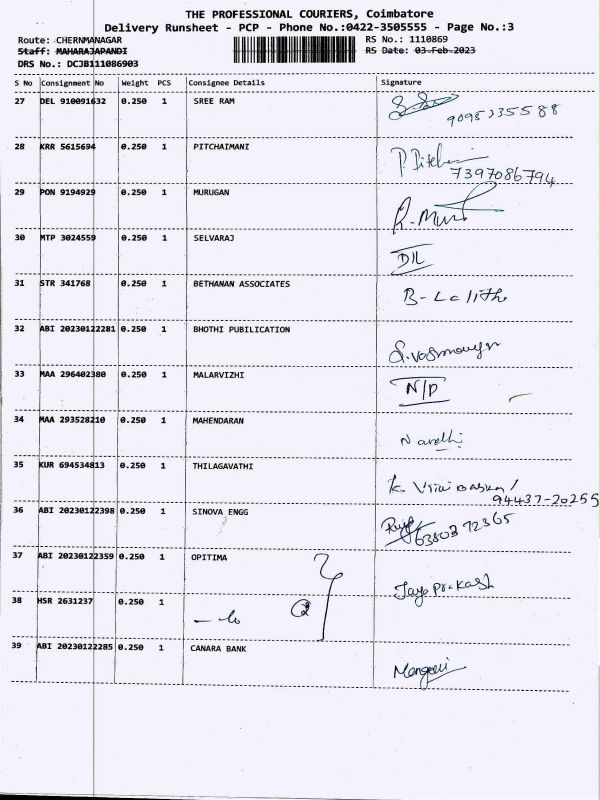 THE PROFESSIONAL COURIERS, Coimbatore
Delivery Runsheet - PCP - Phone No.:0422-3505555 - Page No.:3
Route: CHERNMANAGAR RS No.: 1110869
Staff: MAHARAJAPANDI RS Date: 03-Feb-2023
DRS No.: DCJB111086903
S No Consignment No Weight PCS Consignee Details Signature
27 DEL 910091632 0.250 1 SREE RAM
9095335588
28 KRR 5615694 0.250 1 PITCHAIMANI
7397086794
29 PON 9194929 0.250 1 MURUGAN
30 MTP 3024559 0.250 1 SELVARAJ
D/L
31 STR 341768 0.250 1 BETHANAN ASSOCIATES
B-Lalitha
32 ABI 20230122281 0.250 1 BHOTHI PUBILICATION
33 MAA 296402380 0.250 1 MALARVIZHI
N/D
34 MAA 293528210 0.250 1 MAHENDARAN
35 KUR 694534813 0.250 1 THILAGAVATHI
94437-20255
36 ABI 20230122398 0.250 1 SINOVA ENGG
6380372365
37 ABI 20230122359 0.250 1 OPITIMA
Jaya Prakash
38 HSR 2631237 0.250 1
39 ABI 20230122285 0.250 1 CANARA BANK